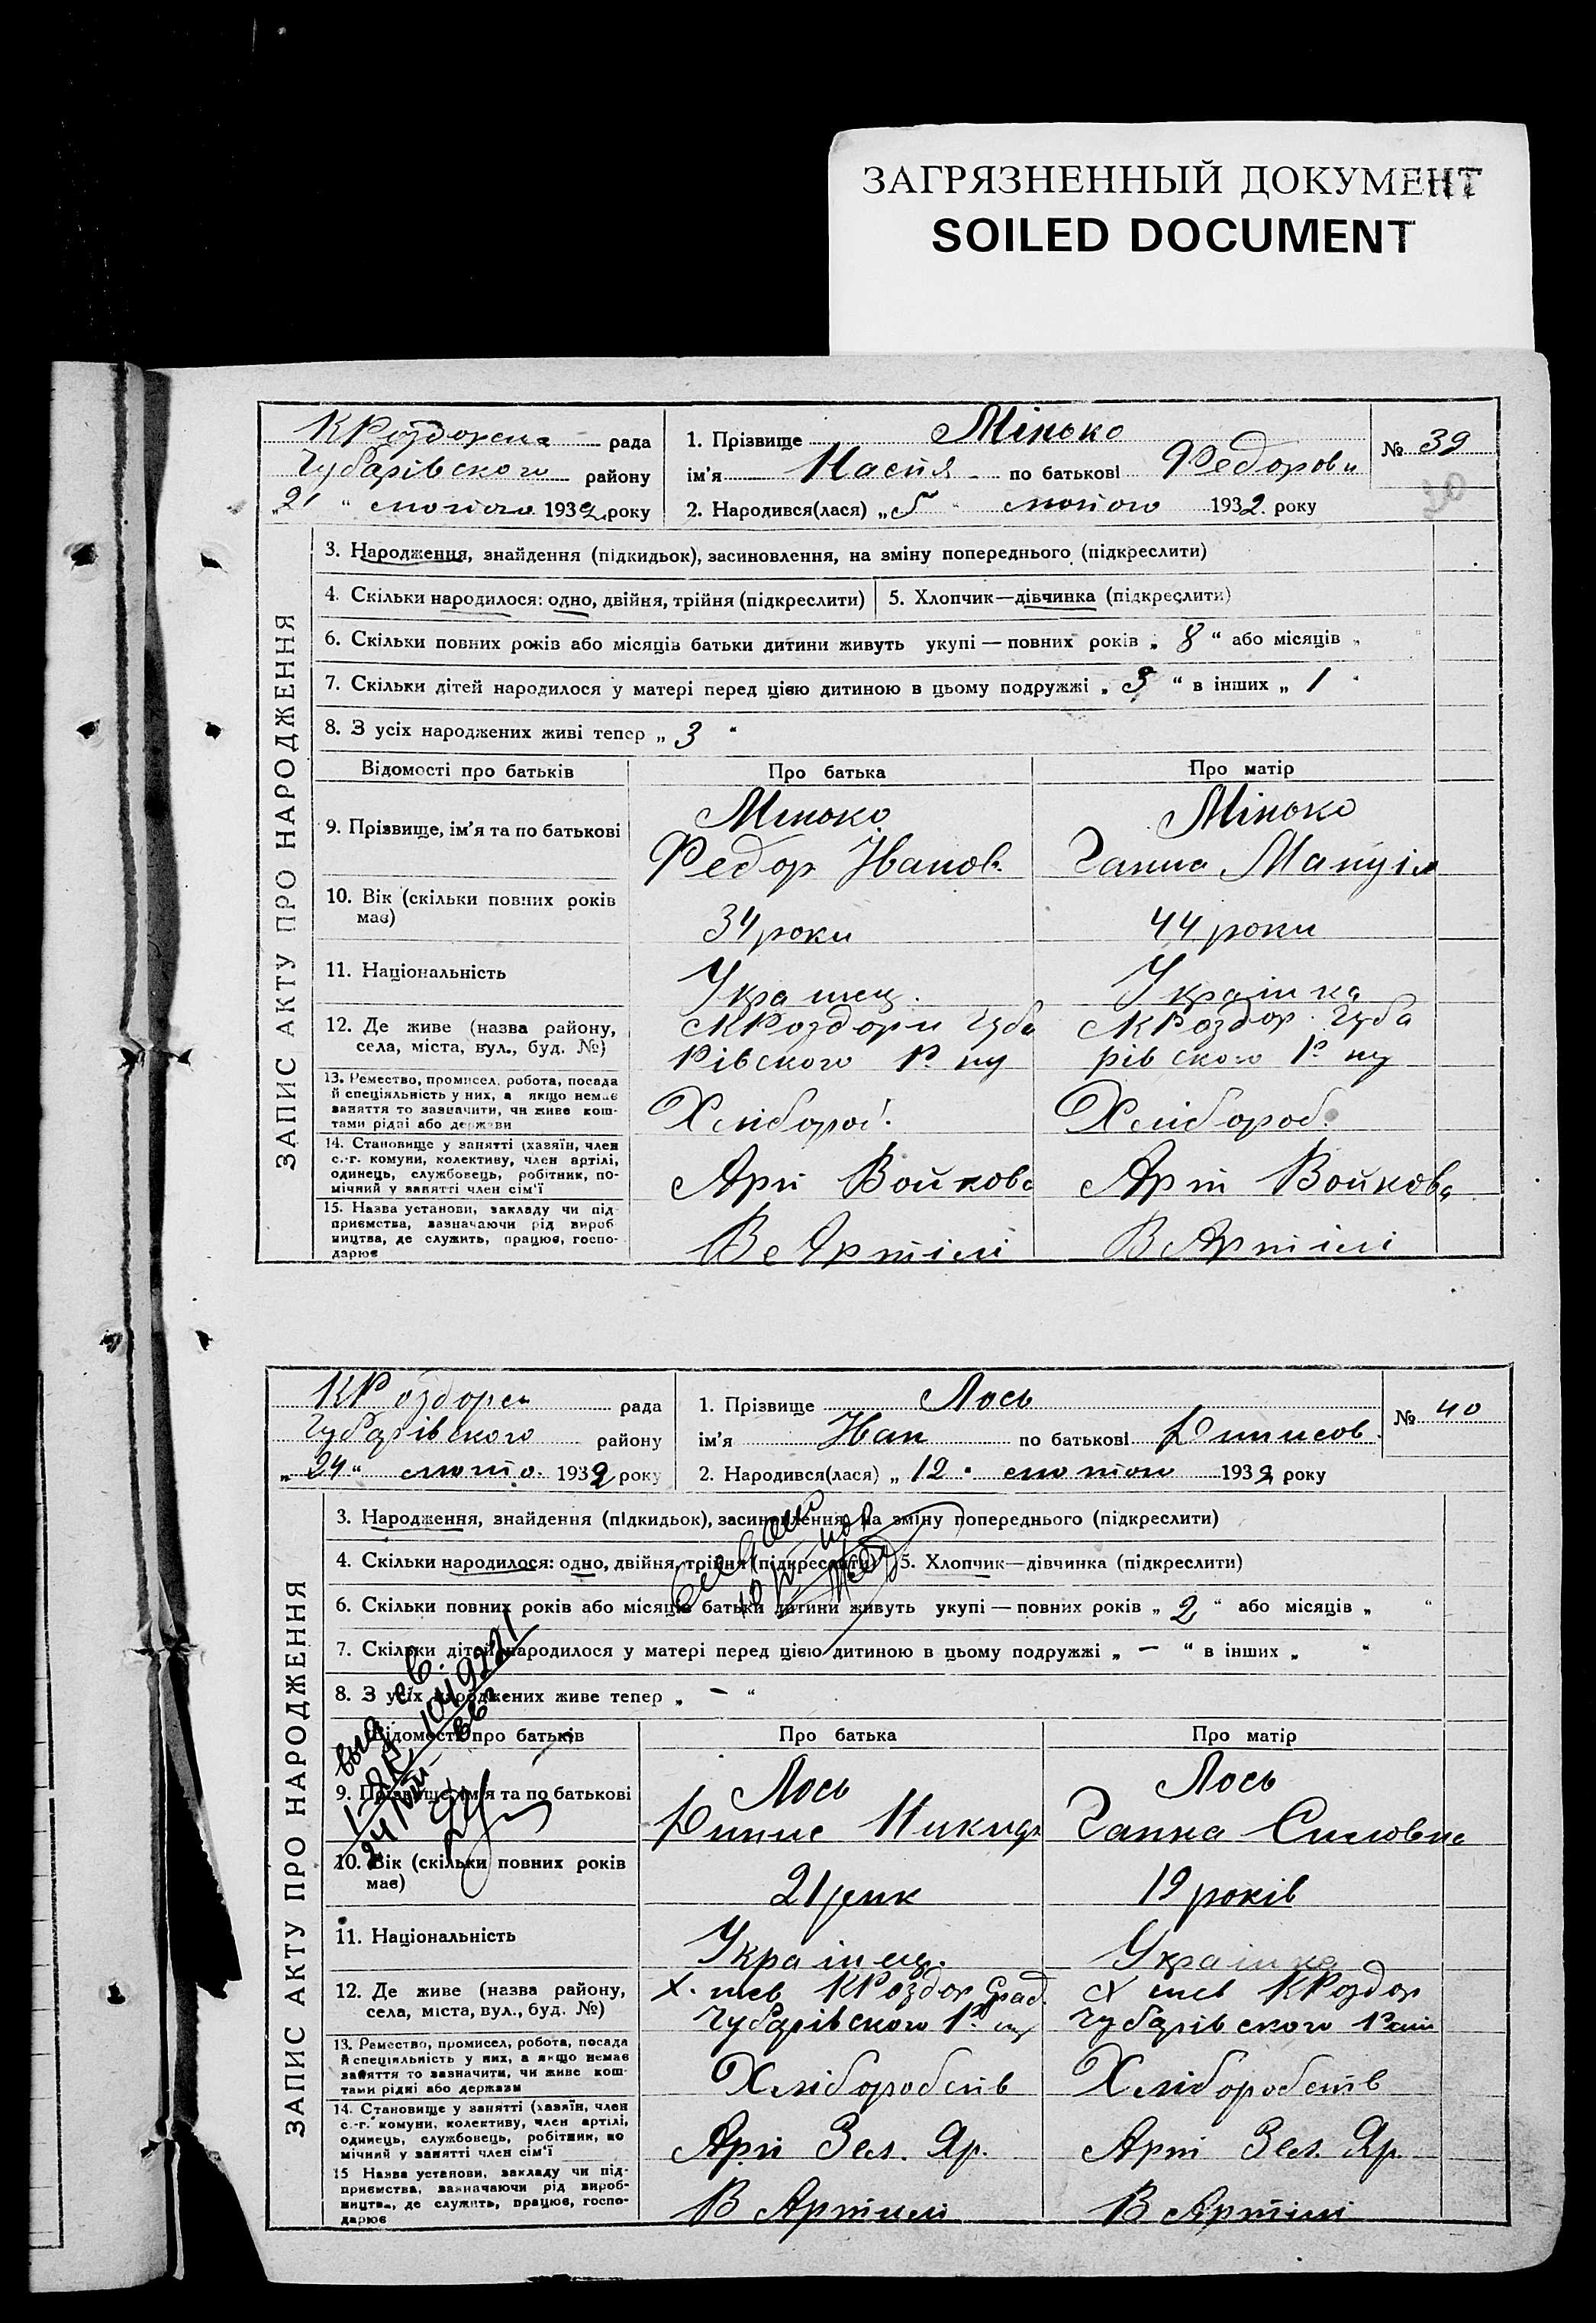 ЗАГРЯЗНЕННЫЙ ДОКУМЕНТ
SOILED DOCUMENT
ЗАПИС АКТУ ПРО НАРОДЖЕННЯ
рада
Чубарівського району
21 " лютого 1932 року
1. Прізвище Мінько
ім'я Настя по батькові Федоровн
2. Народився(лася) „5 " лютого 1932 року
№ 39
30
3. Народження, знайдення (підкидьок), засиновлення, на зміну попереднього (підкреслити)
4. Скільки народилося: одно, двійня, трійня (підкреслити)
5. Хлопчик—дівчинка (підкреслити)
6. Скільки повних років або місяців батьки дитини живуть укупі — повних років „ 8 “ або місяців „ “
7. Скільки дітей народилося у матері перед цією дитиною в цьому подружжі „ 3 “ в інших „ 1 “
8. З усіх народжених живі тепер „ 3 “
Відомості про батьків
Про батька
Про матір
9. Прізвище, ім'я та по батькові
Мінько
Федор Іванов.
Мінько
Ганна Мануіл
10. Вік (скільки повних років має)
34 роки
44 роки
11. Національність
Українец.
Українка
12. Де живе (назва району,
села, міста, вул., буд. №)
КРоздори Чуба
рівского Р-ну
КРоздор. Чуба
рівского Р-ну
13. Ремество, промисел, робота, посада
й спеціяльність у них, а якщо немає
заняття то зазначити, чи живе кош-
тами рідні або держави
Хлібороб.
Хлібороб.
14. Становище у занятті (хазяїн, член
с.-г. комуни, колективу, член артілі,
одинець, службовець, робітник, по-
мічний у занятті член сім'ї
Арт Войкова
Арт Войкова
15. Назва установи, закладу чи під-
приємства, зазначаючи рід вироб-
ництва, де служить, працює, госпо-
дарює
В Артілі
В Артілі
ЗАПИС АКТУ ПРО НАРОДЖЕННЯ
КРоздорсн рада
Чубарівского району
„ 24 “ лютого 1932 року
1. Прізвище Лось
ім'я Іван по батькові Динисов.
2. Народився(лася) „ 12 “ лютого 1932 року
№ 40
3. Народження, знайдення (підкидьок), засиновлення, на зміну попереднього (підкреслити)
4. Скільки народилося: одно, двійня, трійня (підкреслити)
5. Хлопчик—дівчинка (підкреслити)
6. Скільки повних років або місяців батьки дитини живуть укупі — повних років „ 2 “ або місяців „ “
7. Скільки дітей народилося у матері перед цією дитиною в цьому подружжі „ — “ в інших „ “
8. З усіх народжених живе тепер „ — “
Відомості про батьків
Про батька
Про матір
9. Прізвище, ім'я та по батькові
Лось
Динис Никид
Лось
Ганна Силовна
10. Вік (скільки повних років має)
21 рик
19 років
11. Національність
Українец.
Українка
12. Де живе (назва району,
села, міста, вул., буд. №)
КРоздор
Чубарівского
КРоздор
Чубарівского
13. Ремество, промисел, робота, посада
й спеціяльність у них, а якщо немає
заняття то зазначити, чи живе кош-
тами рідні або держави
Хліборобств
Хліборобств
14. Становище у занятті (хазяїн, член
с.-г. комуни, колективу, член артілі,
одинець, службовець, робітник, по
мічний у занятті член сім'ї
Арт Зел. Яр.
Арт Зел. Яр.
15 Назва установи, закладу чи під-
приємства, зазначаючи рід вироб-
ництва, де служить, працює, госпо-
дарює
В Артилі
В Артілі